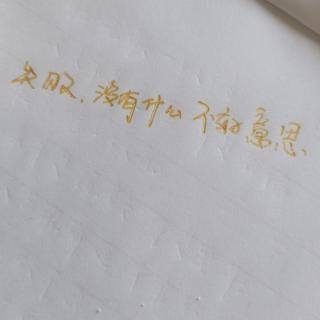 没有什么不好意思